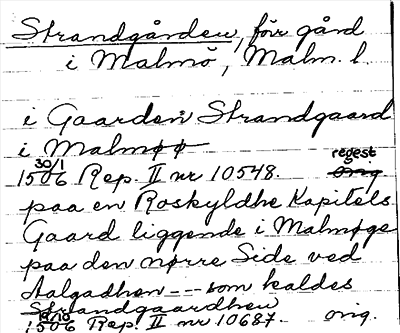 Strandgården, för gård
i Malmö, Malm. l.
i Gaarden Strandgaard
i Malmøø
30/1 regest
1506 Rep. II nr 10548. orig
paa en Roskyldhe Kapitels
Gaard liggende i Malmøge
paa den nørre Side ved
Aalgadhen --- som kaldes
Strandgaardhen
1506 Rep. II nr 10687. orig.